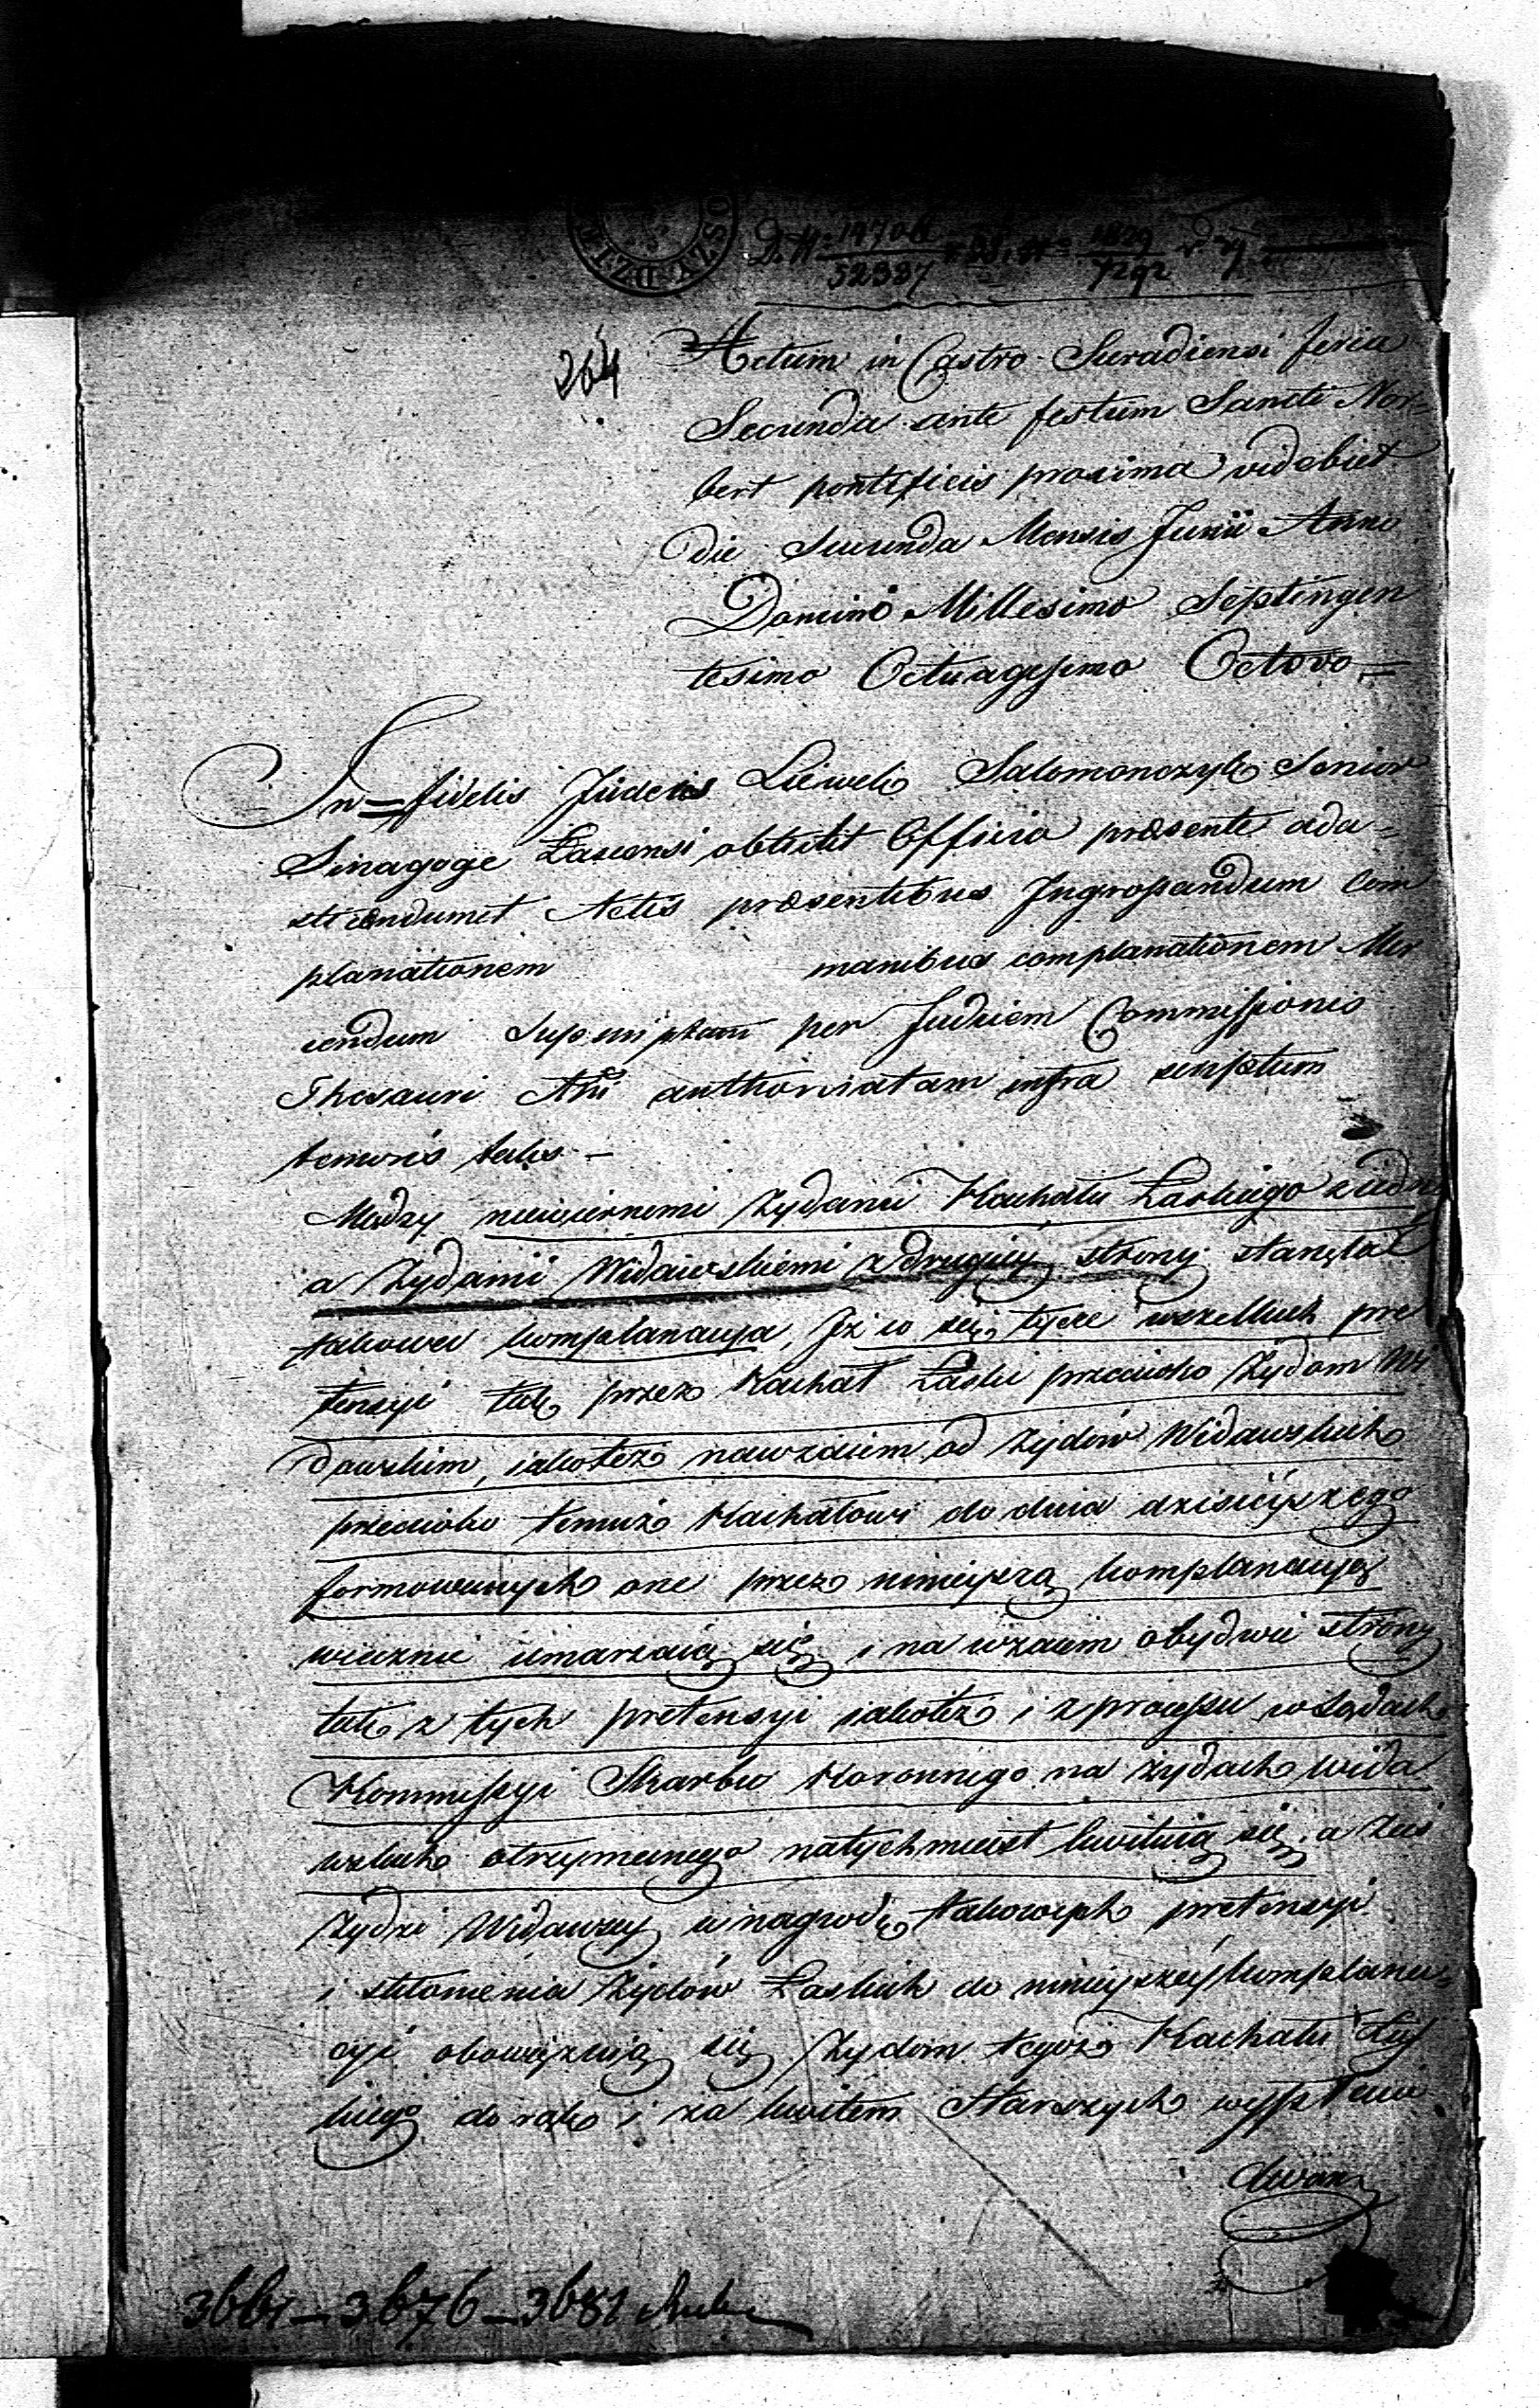 D. N: 14706/52337 1829/7292
264
Actum in Castro Siradiensi feria
Secunda ante festum Sancti Nor-
bert pontificis proxima videbiet
die Secunda Mensis Junii Anno
Domini Millesimo Septingen
tesimo Octuagesimo Octovo
In-fidelis Judeus Liewek Salomonczyk Senior
Sinagoge Łascensi obtulit Officio praesente ada-
sticandumet Actis praesentibus Ingrossandum Com
planationem manibus complanationem
iendum per Judicem Commissionis
Thesauri authorisatam infra scriptum
tenoris talis -
Między niewiernemi Żydami Kachału Łaskiego z iedney
a Żydami Widawskiemi z drugiey strony stanęła
takowa komplanacya, Iż co się tycze wszelkich pre
tensyi tak przez Kachał Łaski przeciwko Żydom Wi
dawskim, iakoteż nawzaiem od Żydów Widawskich
przeciwko temuż Kachałowi do dnia dzisieyszego
formowanych one przez ninieyszą komplanacyą
wiecznie umarzaią się i na wzaiem obydwie strony
tak z tych pretensyi iakoteż i z processu w Sądach
Kommissyi Skarbu Koronnego na żydach Wida
wskich otrzymanego natychmiast kwituią się, a zaś
Żydzi Widawscy w nagrodę takowych pretensyi
i skłonienia Żydów Łaskich do ninieyszey komplana-
cyi obowięzuią się Żydom tegoż Kachału Łas
kiego do rąk i za kwitem Starszych wypłacić
3661 - 3676 - 3681